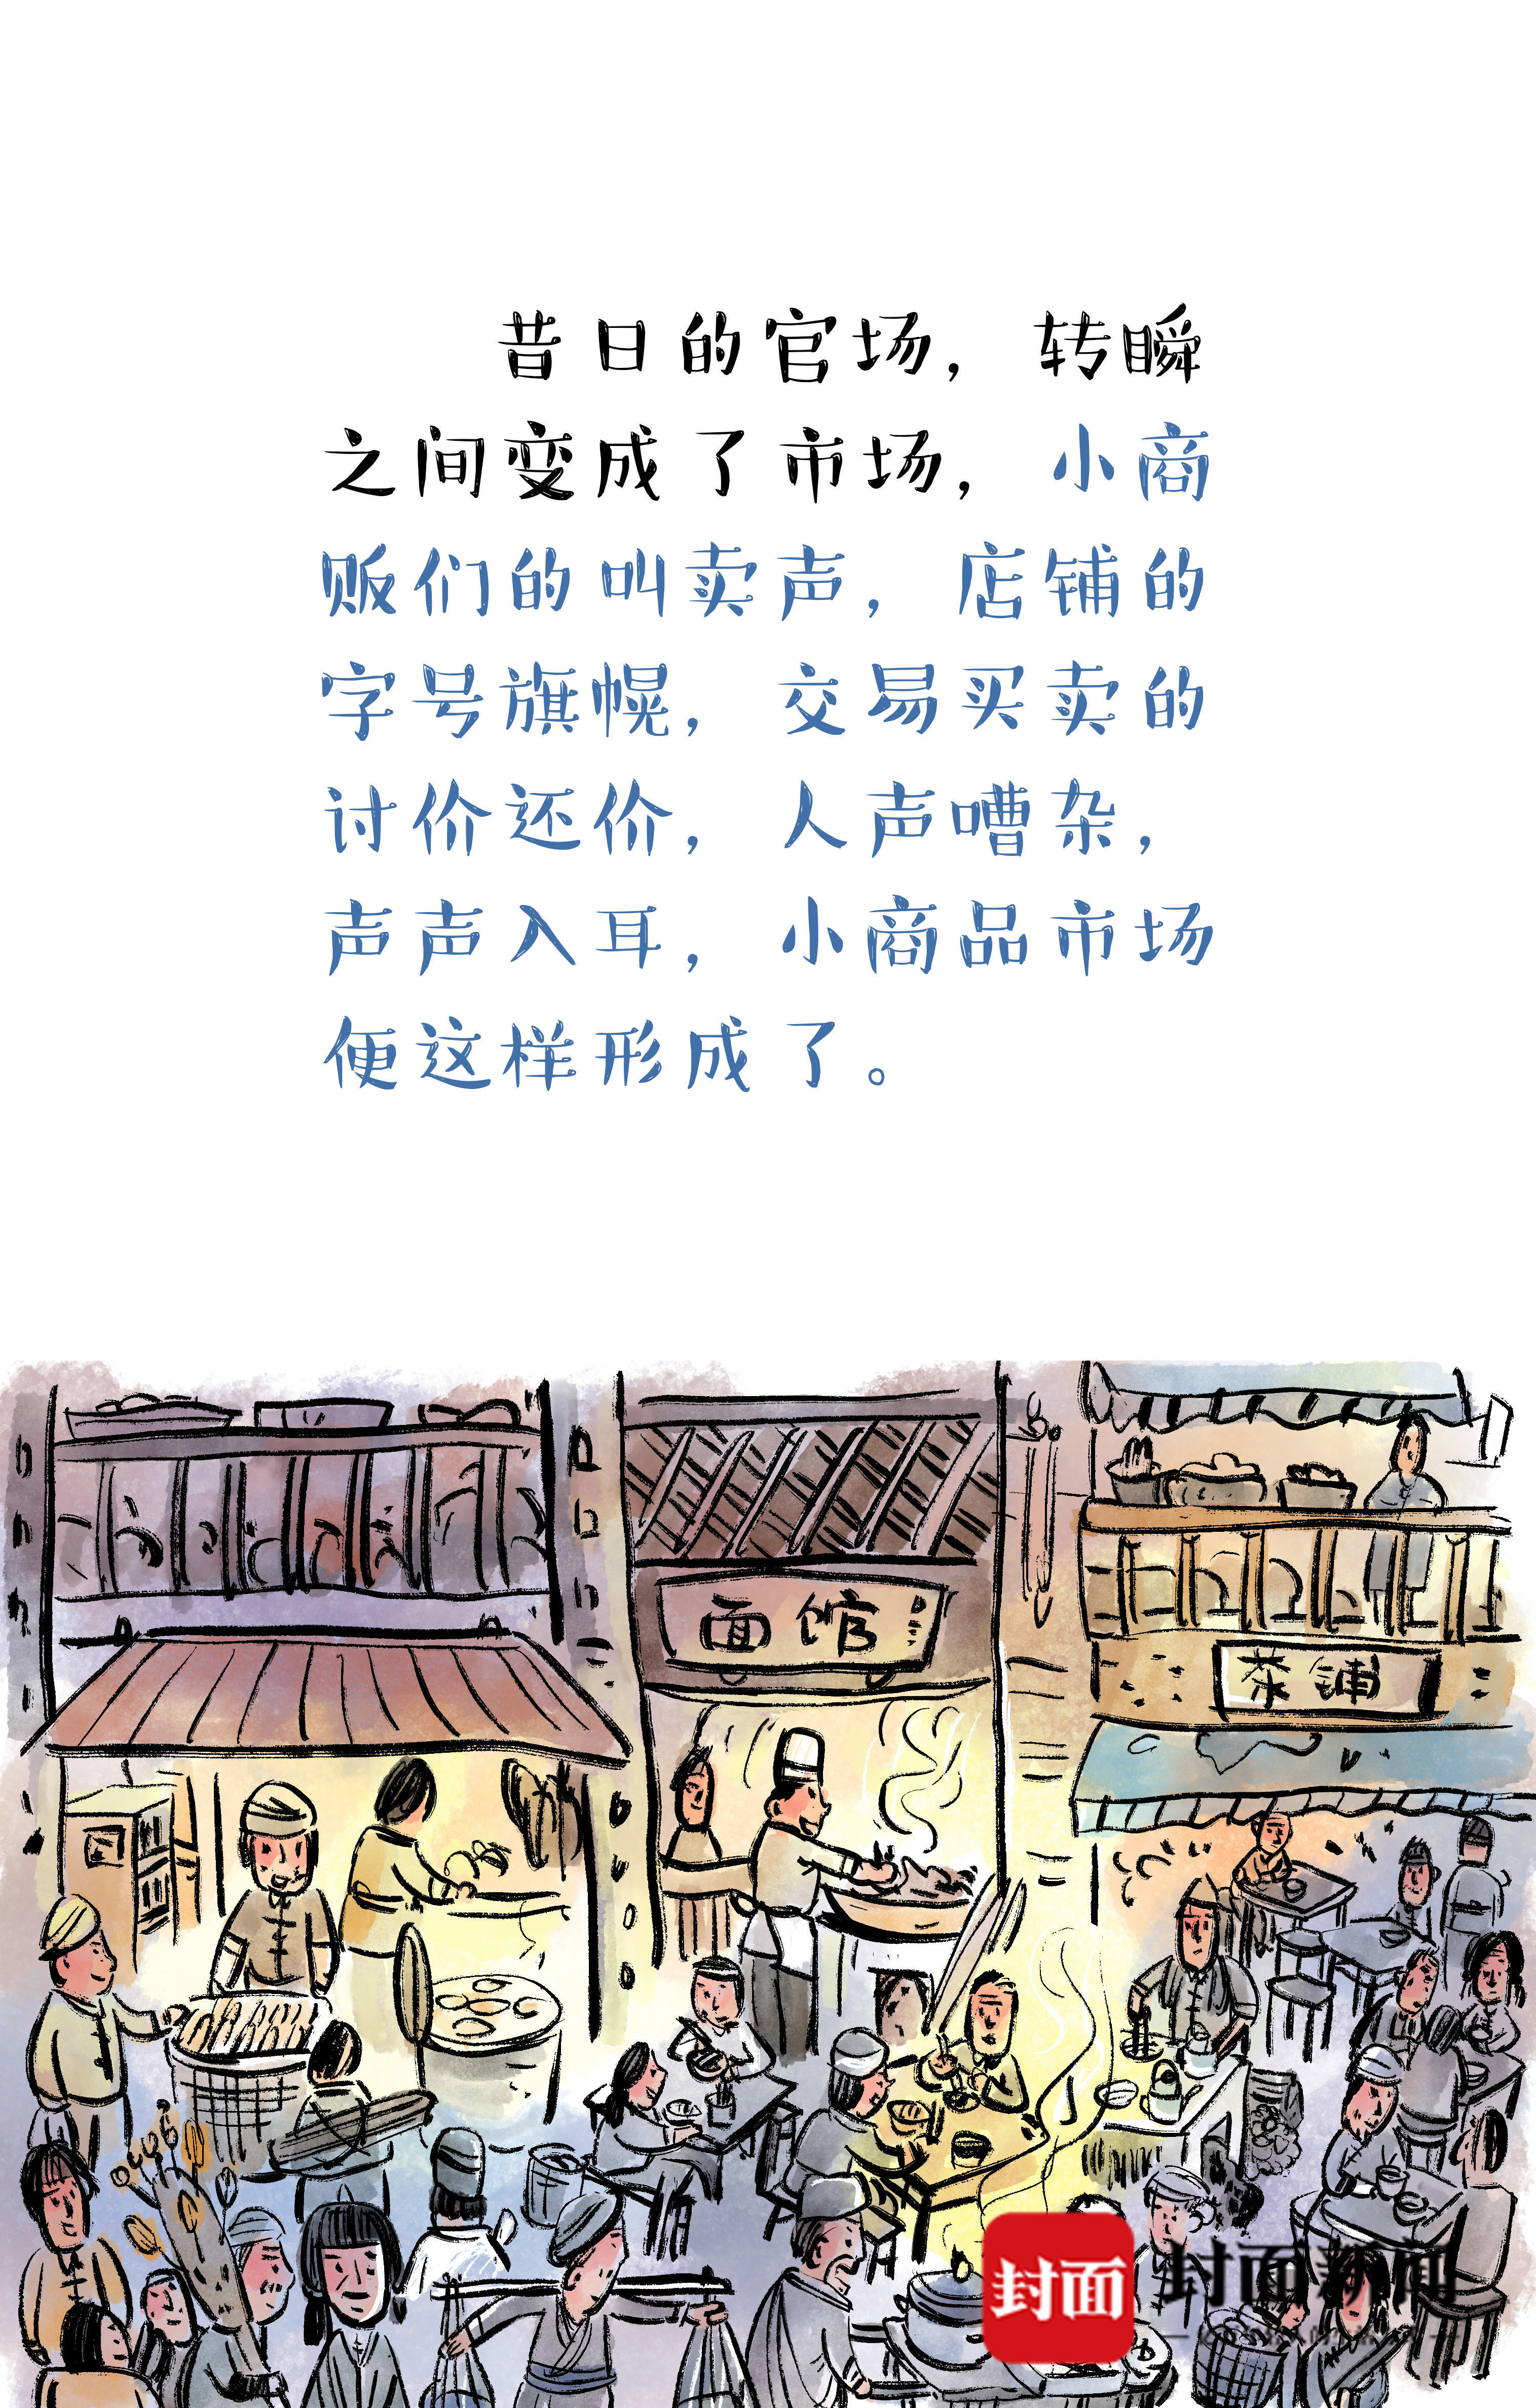 昔日的官场，转瞬
之间变成了市场，小商
贩们的叫卖声，店铺的
字号旗幌，交易买卖的
讨价还价，人声嘈杂，
声声入耳，小商品市场
便这样形成了。
面馆
茶铺
封面
封面新闻